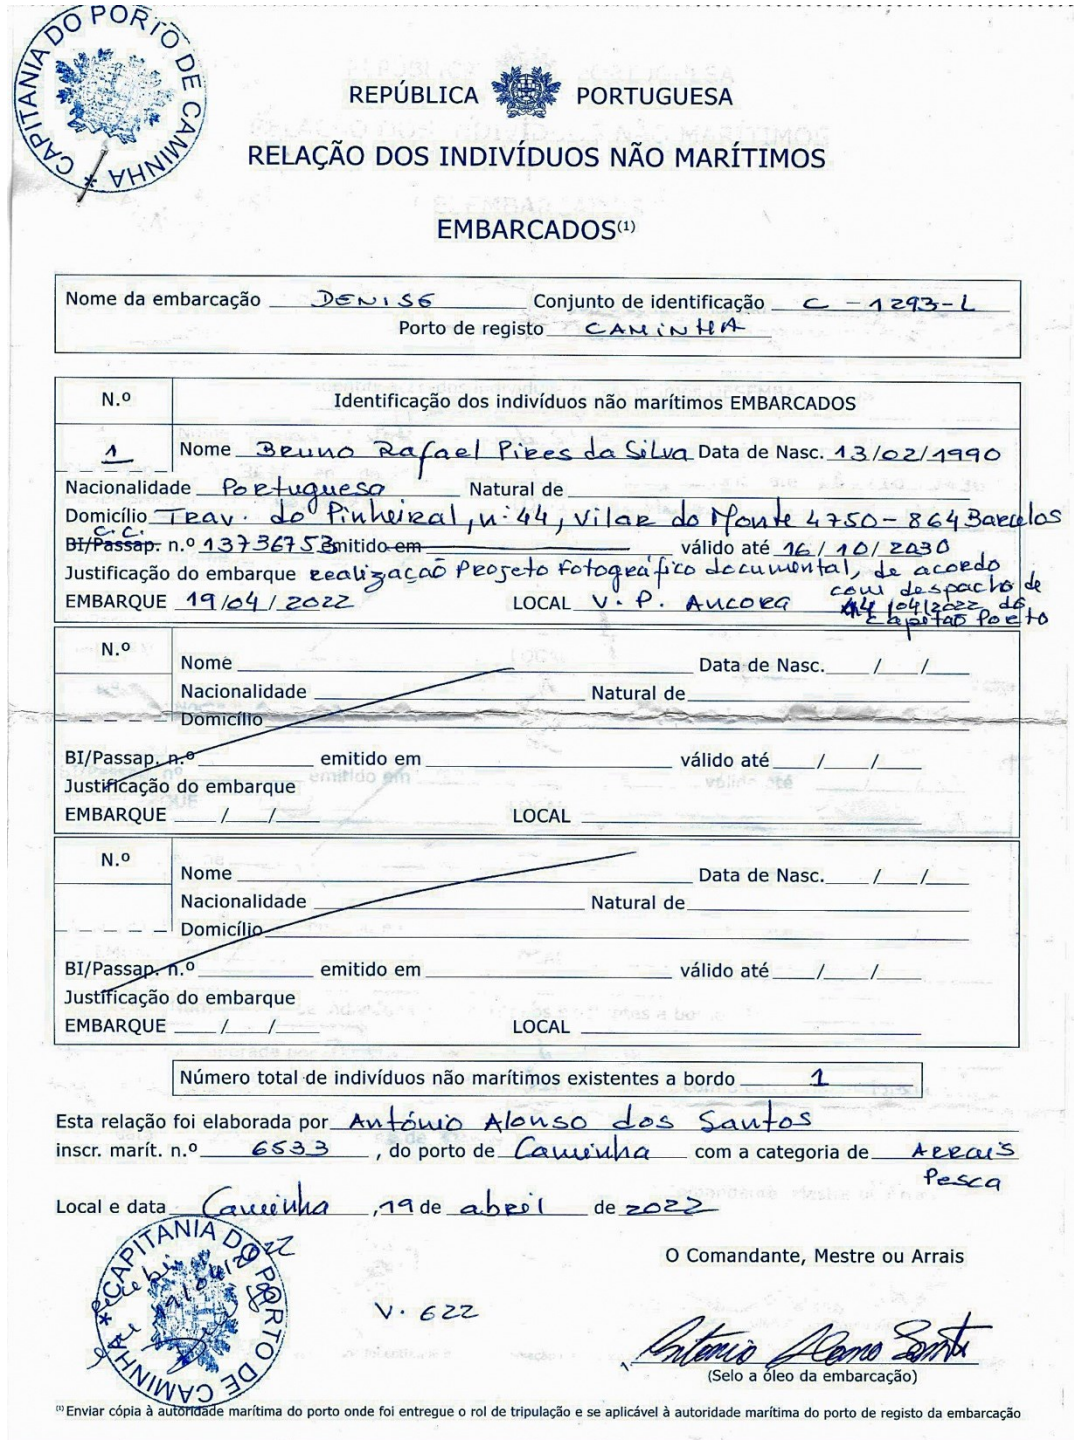 CAPITANIA DO PORTO DE CAMINHA *
REPÚBLICA PORTUGUESA
RELAÇÃO DOS INDIVÍDUOS NÃO MARÍTIMOS
EMBARCADOS(1)
Nome da embarcação DENISE Conjunto de identificação C - 1293-L
Porto de registo CAMINHA
N.º Identificação dos indivíduos não marítimos EMBARCADOS
1 Nome Bruno Rafael Pires da Silva Data de Nasc. 13/02/1990
Nacionalidade Portuguesa Natural de
Domicílio Trav. do Pinheiral, nº 44, Vilar do Monte 4750-864 Barcelos
C.C.
BI/Passap. n.º 13736753 emitido em válido até 16/10/2030
Justificação do embarque realização Projeto fotográfico documental, de acordo
com despacho de
EMBARQUE 19/04/2022 LOCAL V. P. ANCORA 14/04/2022 do
Capitão Porto
N.º
Nome Data de Nasc. / /
Nacionalidade Natural de
Domicílio
BI/Passap. n.º emitido em válido até / /
Justificação do embarque
EMBARQUE / / LOCAL
N.º
Nome Data de Nasc. / /
Nacionalidade Natural de
Domicílio
BI/Passap. n.º emitido em válido até / /
Justificação do embarque
EMBARQUE / / LOCAL
Número total de indivíduos não marítimos existentes a bordo 1
Esta relação foi elaborada por António Alonso dos Santos
inscr. marít. n.º 6533, do porto de Caminha com a categoria de Arrais
Pesca
Local e data Caminha, 19 de abril de 2022
CAPITANIA DO PORTO DE CAMINHA *
Recebi
19/04/2022
O Comandante, Mestre ou Arrais
V. 622
António Alonso Santos
(Selo a óleo da embarcação)
(1) Enviar cópia à autoridade marítima do porto onde foi entregue o rol de tripulação e se aplicável à autoridade marítima do porto de registo da embarcação